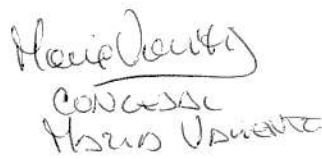 Maria Valiente
CONCEJAL
MARIA VALIENTE